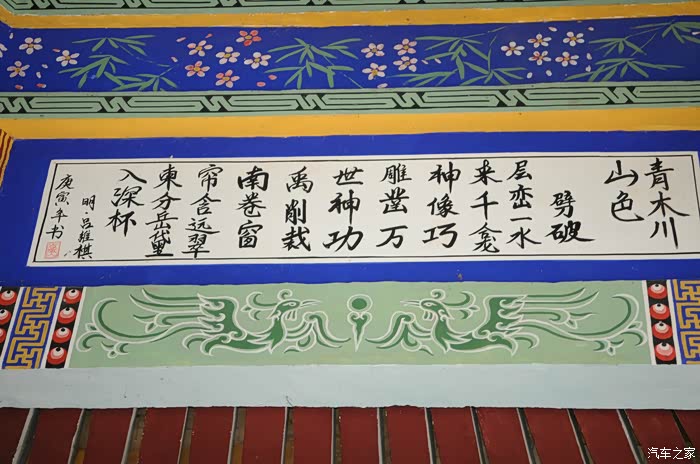 青木川
山色
劈破
层峦一水
来千龛
神像巧
雕凿万
世神功
禹削裁
南卷窗
帘含远翠
東分岳黛
入深杯
明·吕维棋
庚寅年书
汽车之家